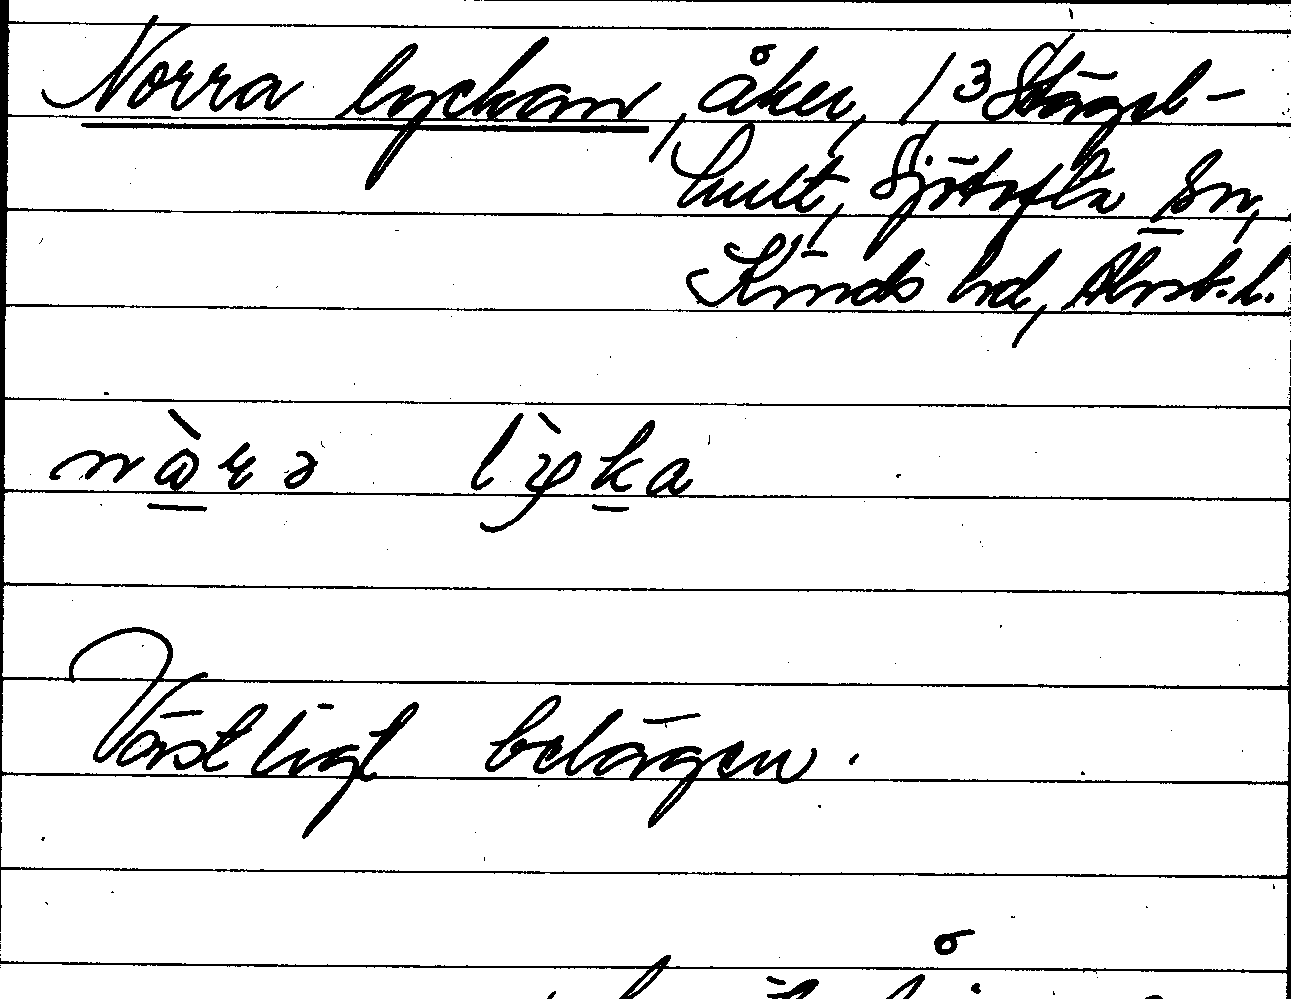 Norra lyckan, åker, 1³ Stägel-
hult, Sjötofta sn,
Kinds hd, Älvsb. l.
lyka
Västligt belägen.